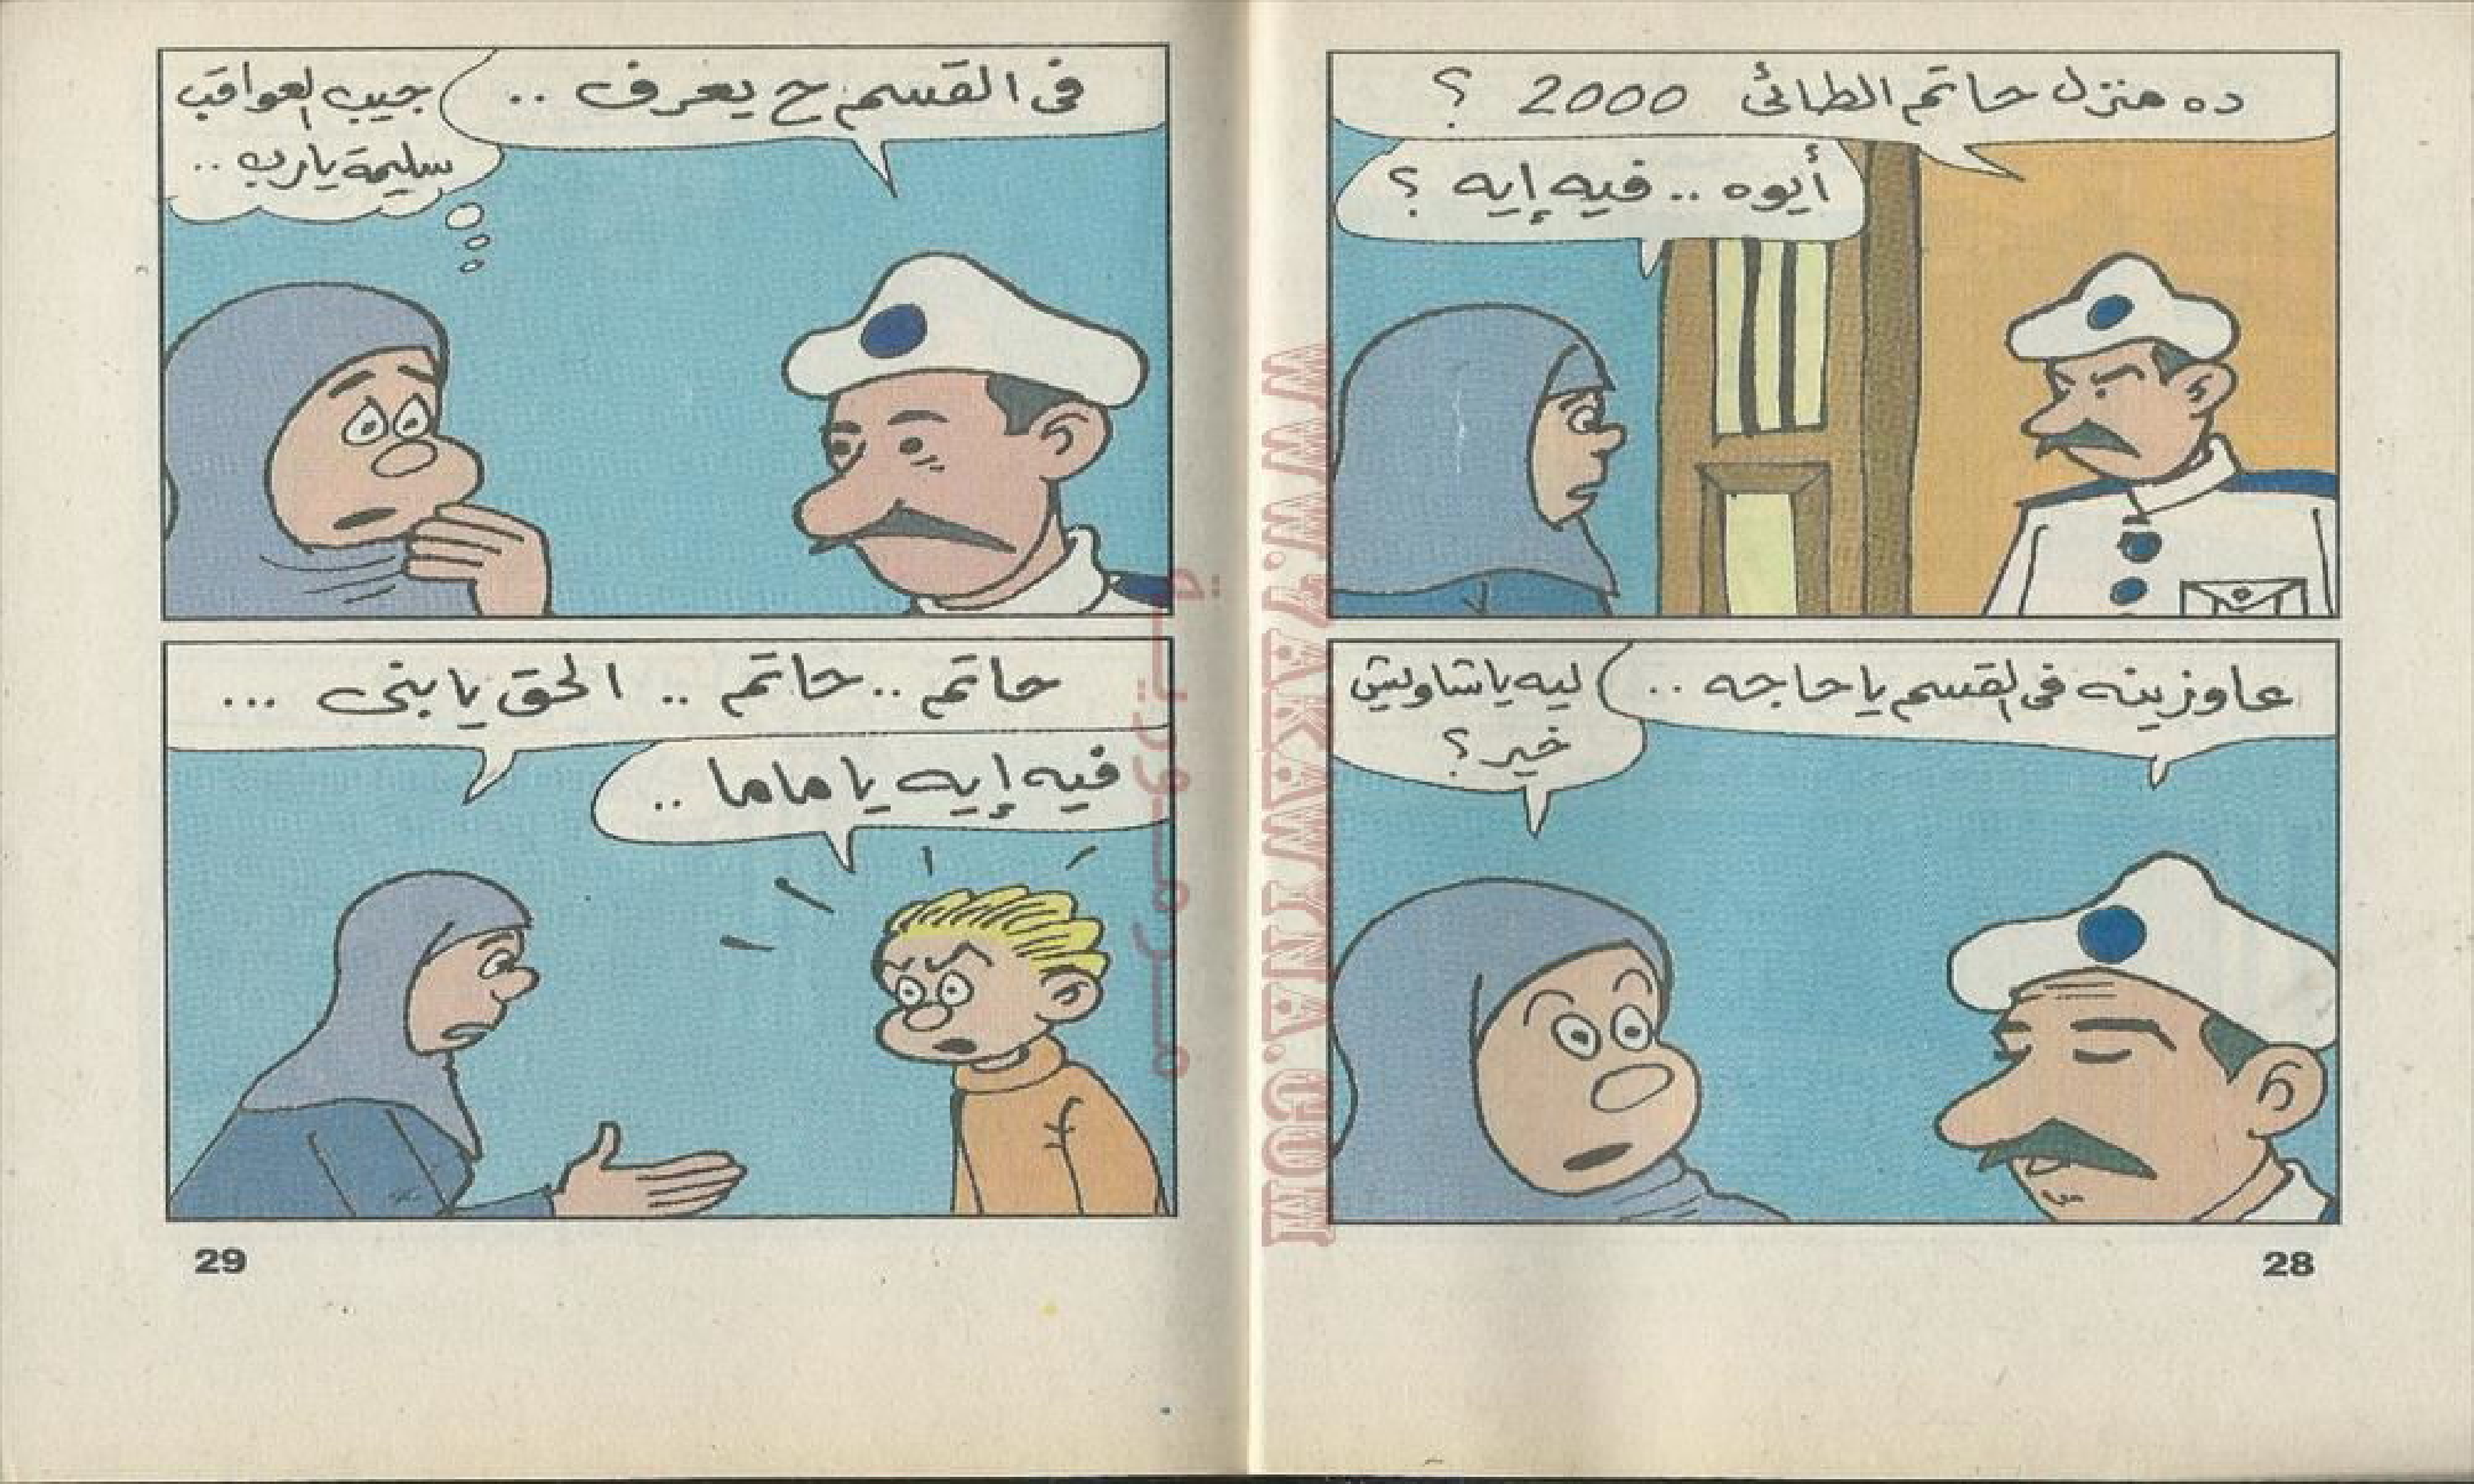 ده منزل حاتم الطائى 2000 ؟
أيوه .. فيه إيه ؟
عاوزينه فى القسم يا حاجه ..
ليه ياشاويش
خير؟
28
فى القسم ح يعرف ..
جيب العواقب
سليمة يارب ..
حاتم .. حاتم .. الحق يا بنى ...
فيه إيه يا ماما ..
29